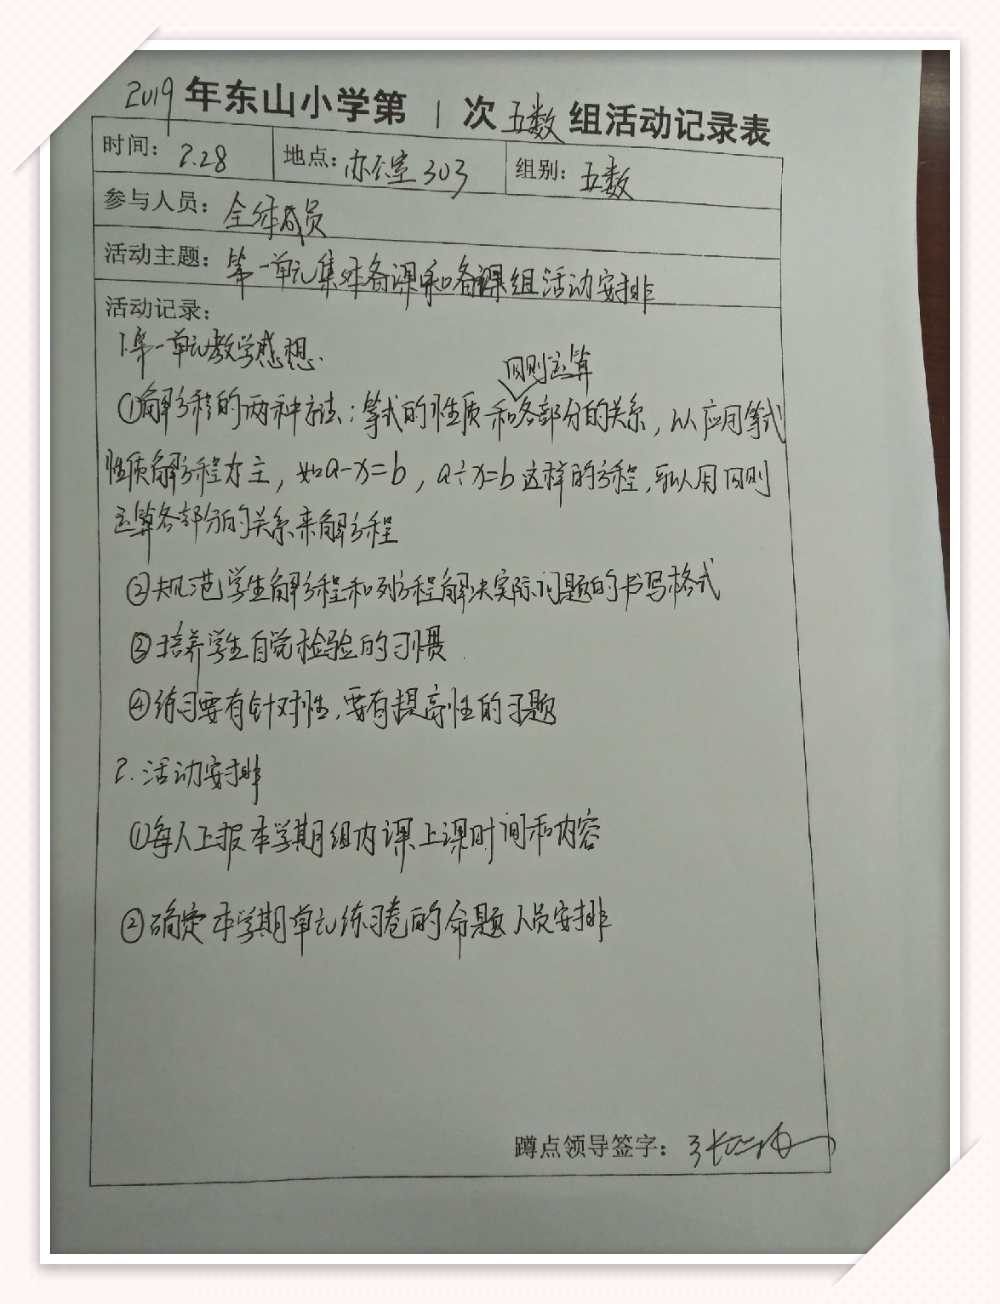 2019年东山小学第1次五数组活动记录表
时间：2.28 地点：办公室303 组别：五数
参与人员：全体成员
活动主题：第一单元集体备课和备课组活动安排
活动记录：
1.第一单元教学感想.
四则运算
①解方程的两种方法：等式的性质和各部分的关系，以应用等式
性质解方程为主，如a-x=b，a÷x=b这样的方程，可以用四则
运算各部分的关系来解方程
②规范学生解方程和列方程解决实际问题的书写格式
③培养学生自觉检验的习惯
④练习要有针对性，要有提高性的习题
2.活动安排
①每人上报本学期组内课上课时间和内容
②确定本学期单元练习卷的命题人员安排
蹲点领导签字：张